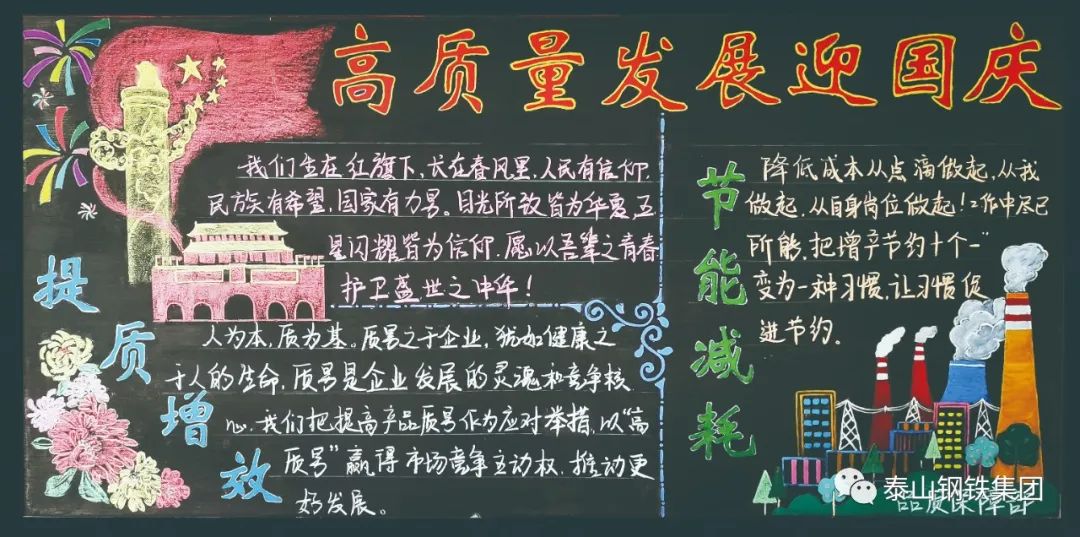 高质量发展迎国庆
我们生在红旗下,长在春风里,人民有信仰,
民族有希望,国家有力量。目光所致皆为华夏,五
星闪耀皆为信仰,愿以吾辈之青春
护卫盛世之中华!
提质增效
人为本,质为基。质量之于企业,犹如健康之
于人的生命,质量是企业发展的灵魂和竞争核
心,我们把提高产品质量作为应对举措,以“高
质量”赢得市场竞争主动权,推动更
好发展。
节能减耗
降低成本从点滴做起,从我
做起,从自身岗位做起!工作中尽己
所能,把增产节约十个一”
变为一种习惯,让习惯促
进节约。
泰山钢铁集团
品质保障部